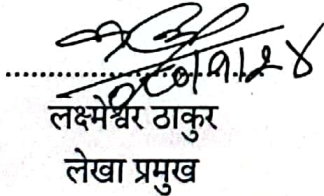 लक्ष्मेश्वर ठाकुर
लेखा प्रमुख